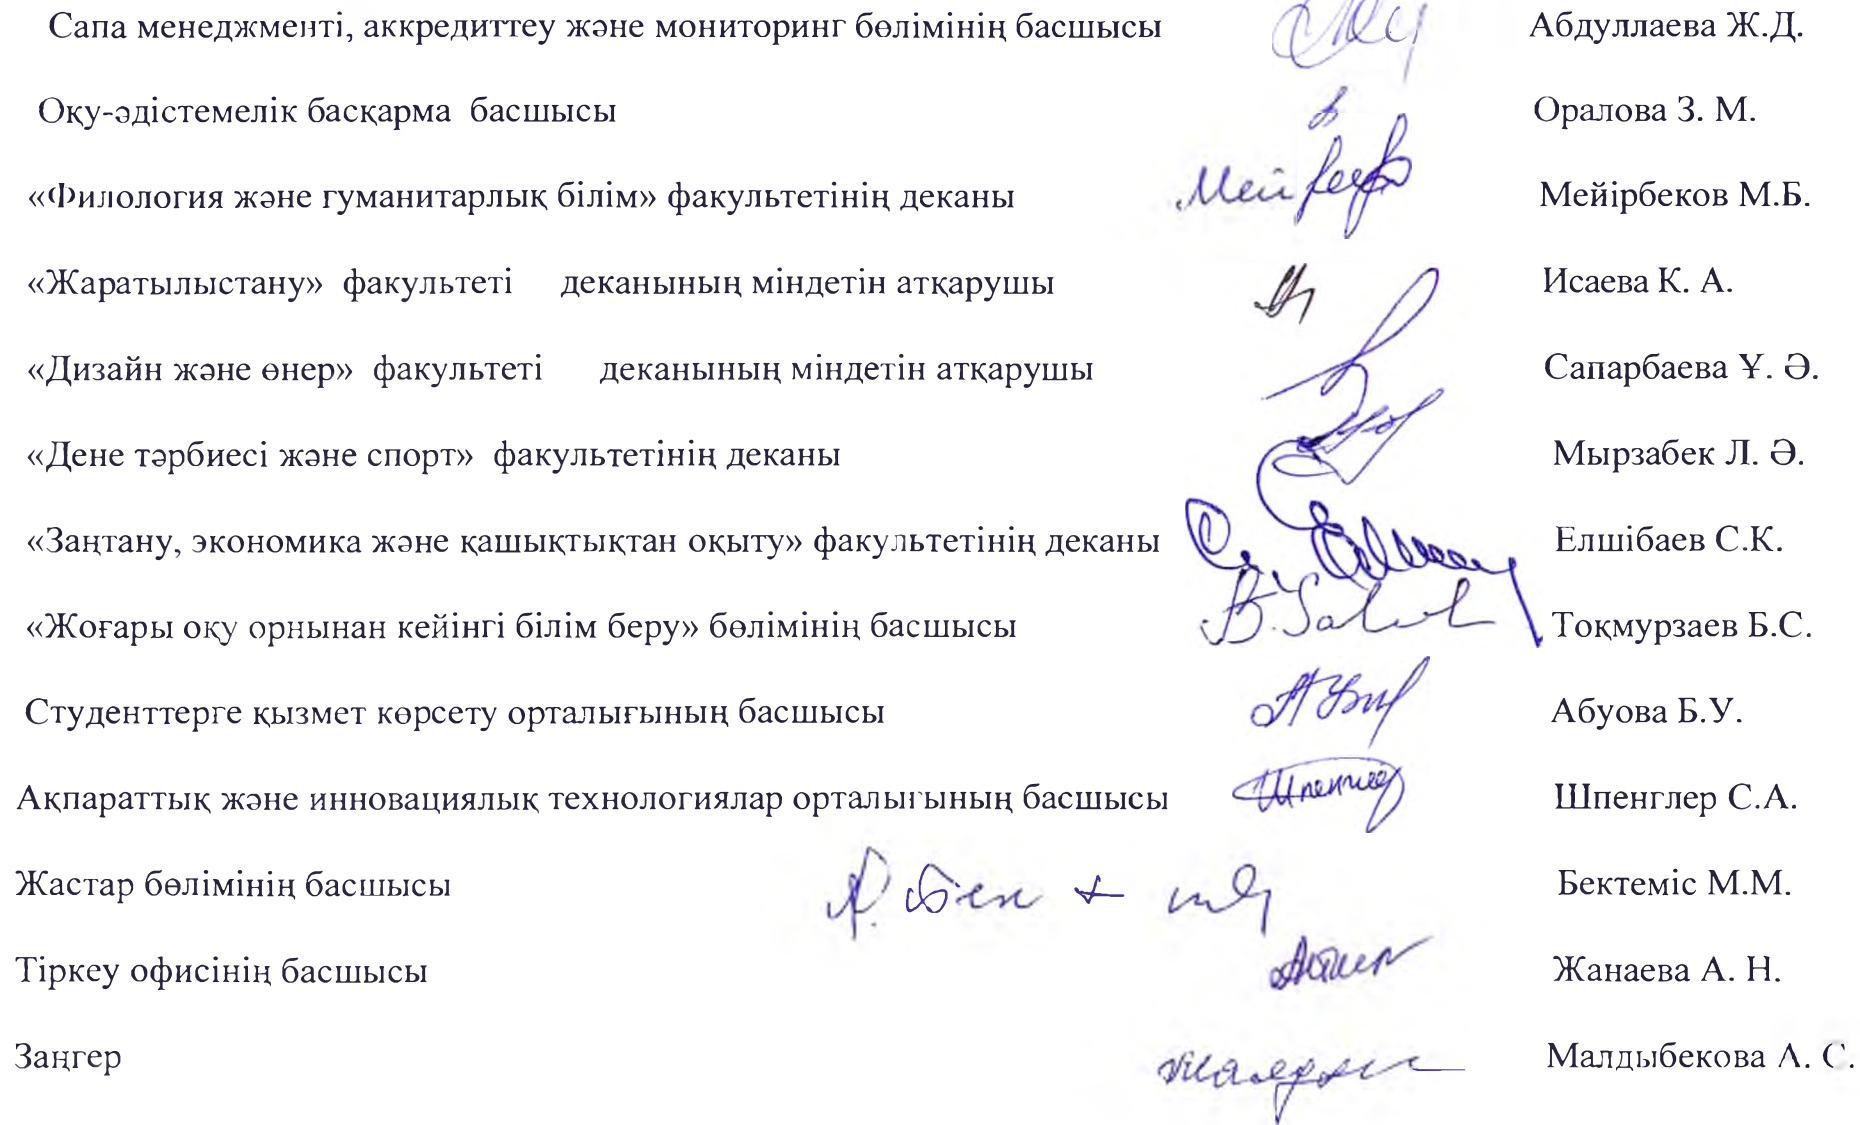 Сапа менеджменті, аккредиттеу және мониторинг бөлімінің басшысы Абдуллаева Ж.Д.
Оқу-әдістемелік басқарма басшысы Оралова З. М.
«Филология және гуманитарлық білім» факультетінің деканы Мейірбеков М.Б.
«Жаратылыстану» факультеті деканының міндетін атқарушы Исаева К. А.
«Дизайн және өнер» факультеті деканының міндетін атқарушы Сапарбаева Ұ. Ә.
«Дене тәрбиесі және спорт» факультетінің деканы Мырзабек Л. Ә.
«Заңтану, экономика және қашықтықтан оқыту» факультетінің деканы Елшібаев С.К.
«Жоғары оқу орнынан кейінгі білім беру» бөлімінің басшысы Тоқмурзаев Б.С.
Студенттерге қызмет көрсету орталығының басшысы Абуова Б.У.
Ақпараттық және инновациялық технологиялар орталығының басшысы Шпенглер С.А.
Жастар бөлімінің басшысы Бектеміс М.М.
Тіркеу офисінің басшысы Жанаева А. Н.
Заңгер Малдыбекова А. С.